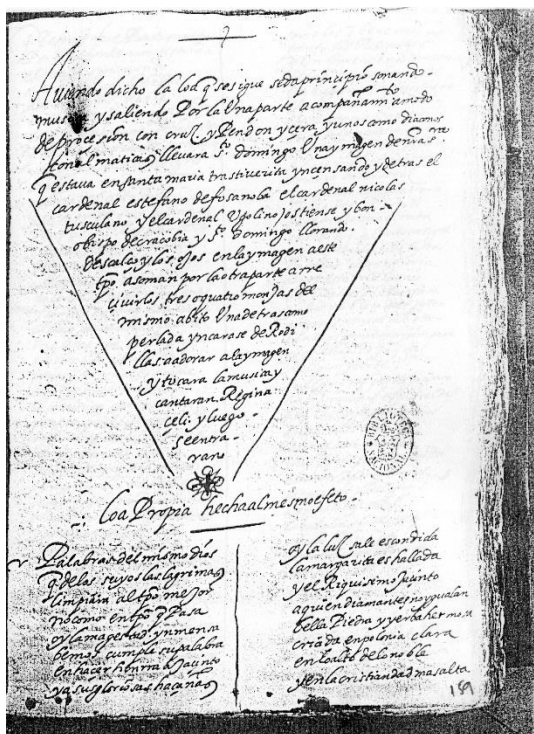 Auiendo dicho la loa q se sigue se da principio sonando
musica y saliendo Por la Una parte acompañamto a modo
de procesion con cruz y Pendon y cera y unos como diaconos
con almaticas lleuara sto domingo Una ymagen de nra sra
q estaua en santa maria trastiuerita yncensando y detras el
cardenal estefano de fosanoba el cardenal nicolas
tusculano y el cardenal Vgolino ostiense y bon
obispo de cracobia y sto domingo llorando
descalço y los ojos en la ymagen a este
tpo asoman por la otra parte a rre
ciuirlos tres o quatro monjas del
mismo abito Una detras como
perlada yncarase de Rodi
llas a adorar a la ymagen
y tocara la musica y
cantaran Regina
celi y luego
se entra
ran
loa Propia hecha al mesmo efeto
Palabras del mismo dios
q de las suyos las lagrimas
limpiara al tpo mejor
no como en tpo q Pasa
oy la magestad ynmensa
bemos cumple su palabra
en hacer honrra a Jacinto
y a sus gloriosas hacañas
oy la luz sale escondida
la margarita es hallada
y el Riquisimo Jacinto
a quien diamantes no ygualan
bella Piedra y yerba hermosa
criada en polonia clara
en lo alto de lo noble
y en la cristiandad mas alta
189